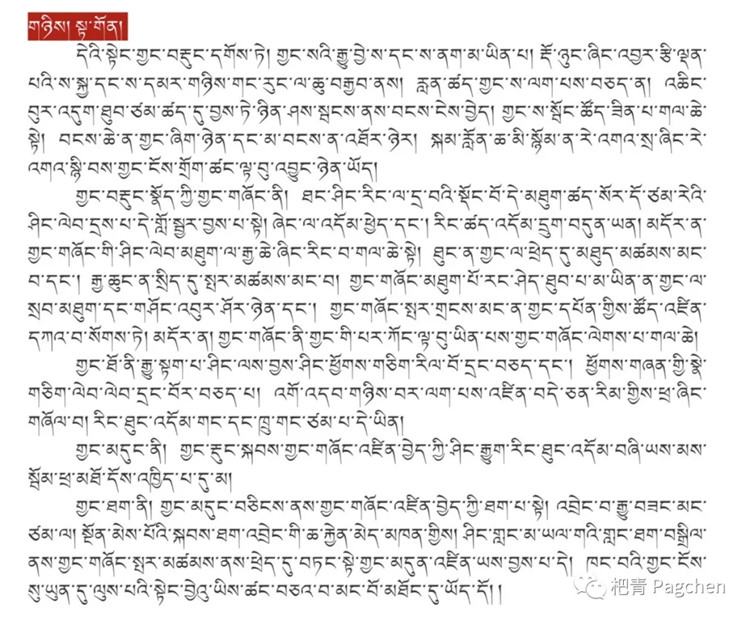 གཉིས། སྟ་གོན།
དེའི་སྟེང་གྱང་བརྡུང་དགོས་ཏེ། གྱང་སའི་རྒྱུ་བྱེ་ས་དང་ས་ནག་མ་ཡིན་པ། རྡོ་ཉུང་ཞིང་འབྱར་རྩི་ལྡན་
པའི་ས་སྐྱ་དང་ས་དམར་གཉིས་གང་རུང་ལ་ཆུ་བརྒྱབ་ནས། རློན་ཚད་གྱང་ས་ལག་པས་བཅད་ན། འཆིང་
བུར་འདུག་ཐུབ་ཙམ་ཚད་དུ་བྱས་ཏེ་ཉིན་ཤས་སྦངས་ནས་བངས་ངེས་བྱེད། གྱང་ས་སྦོང་ཚོད་ཟིན་པ་གལ་ཆེ་
སྟེ། བངས་ཆེ་ན་གྱང་ཞིག་ཉེན་དང་མ་བངས་ན་འཐོར་ཉེར། སྐམ་རློན་ཆ་མི་སྙོམ་ན་རེ་འགའ་སྲ་ཞིང་རེ་
འགའ་སྙི་བས་གྱང་ངོས་གྲོག་ཚང་ལྟ་བུ་འབྱུང་ཉེན་ཡོད།
གྱང་བརྡུང་སྣོད་ཀྱི་གྱང་གཞོང་ནི། ཐང་ཤིང་རིང་ལ་དྲ་བའི་སྡོང་བོ་དེ་མཐུག་ཚད་སོར་དོ་ཙམ་རེའི་
ཤིང་ལེབ་དྲས་པ་དེ་གློ་སྦྱར་བྱས་པ་སྟེ། ཞེང་ལ་འདོམ་ཕྱེད་དང་། རིང་ཚད་འདོམ་དྲུག་བདུན་ཡན། མདོར་ན་
གྱང་གཞོང་གི་ཤིང་ལེབ་མཐུག་ལ་རྒྱ་ཆེ་ཞིང་རིང་བ་གལ་ཆེ་སྟེ། ཐུང་ན་གྱང་ལ་ཕྲེད་དུ་མཐུད་མཚམས་མང་
བ་དང་། རྒྱ་ཆུང་ན་སྲིད་དུ་སྤར་མཚམས་མང་བ། གྱང་གཞོང་མཐུག་པོ་རང་ཤེད་ཐུབ་པ་མ་ཡིན་ན་གྱང་ལ་
སྲབ་མཐུག་དང་གཤོང་འབུར་ཤོར་ཉེན་དང་། གྱང་གཞོང་སྤར་གྲངས་མང་ན་གྱང་དཔོན་གྱིས་ཚོད་འཛིན་
དཀའ་བ་སོགས་ཏེ། མདོར་ན། གྱང་གཞོང་ནི་གྱང་གི་པར་ཀོང་ལྟ་བུ་ཡིན་པས་གྱང་གཞོང་ལེགས་པ་གལ་ཆེ།
གྱང་ཐོ་ནི་རྒྱུ་སྟག་པ་ཤིང་ལས་བྱས་ཤིང་ཕྱོགས་གཅིག་རིལ་བོ་དྲང་བཅད་དང་། ཕྱོགས་གཞན་གྱི་སྣེ་
གཅིག་ལེབ་ལེབ་དྲང་བོར་བཅད་པ། འགོ་འདབ་གཉིས་བར་ལག་པས་འཛིན་བདེ་ཅན་རིམ་གྱིས་ཕྲ་ཞིང་
གཞོལ་བ། རིང་ཐུང་འདོམ་གང་དང་ཁྲུ་གང་ཙམ་པ་དེ་ཡིན།
གྱང་མདུང་ནི། གྱང་རྡུང་སྐབས་གྱང་གཞོང་འཛིན་བྱེད་ཀྱི་ཤིང་རྒྱུག་རིང་ཐུང་འདོམ་བཞི་ཡས་མས་
སྦོམ་ཕྲ་མཐོ་དོས་འཁྱིད་པ་དུ་མ།
གྱང་ཐག་ནི། གྱང་མདུང་བཅིངས་ནས་གྱང་གཞོང་འཛིན་བྱེད་ཀྱི་ཐག་པ་སྟེ། འབྲེང་བ་རྒྱུ་བཟང་མང་
ཙམ་ལ། སྔོན་མེས་པོའི་སྐབས་ཐག་འབྲེང་གི་ཆ་རྐྱེན་མེད་མཁན་གྱིས། ཤིང་གླང་མ་ཡལ་གའི་གླང་ཐག་བསྒྲིལ་
ནས་གྱང་གཞོང་སྤར་མཚམས་ནས་ཕྲེད་དུ་བཏང་སྟེ་གྱང་མདུན་འཛིན་ཡས་བྱས་པ་དེ། ཁང་བའི་གྱང་ངོས་
སུ་ཡུན་དུ་ལུས་པའི་སྟེང་བྱེའུ་ཡིས་ཚང་བཅའ་བ་མང་བོ་མཐོང་དུ་ཡོད་དོ། །
杷青 Pagchen